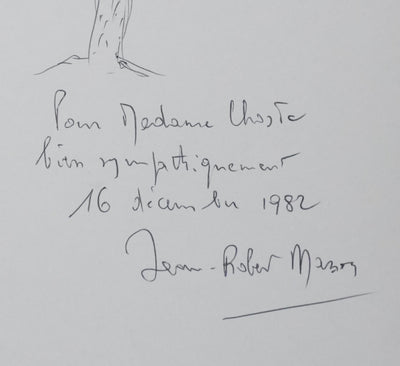 Pour Madame
bien sympathiquement
16 décembre 1982
Jean-Robert